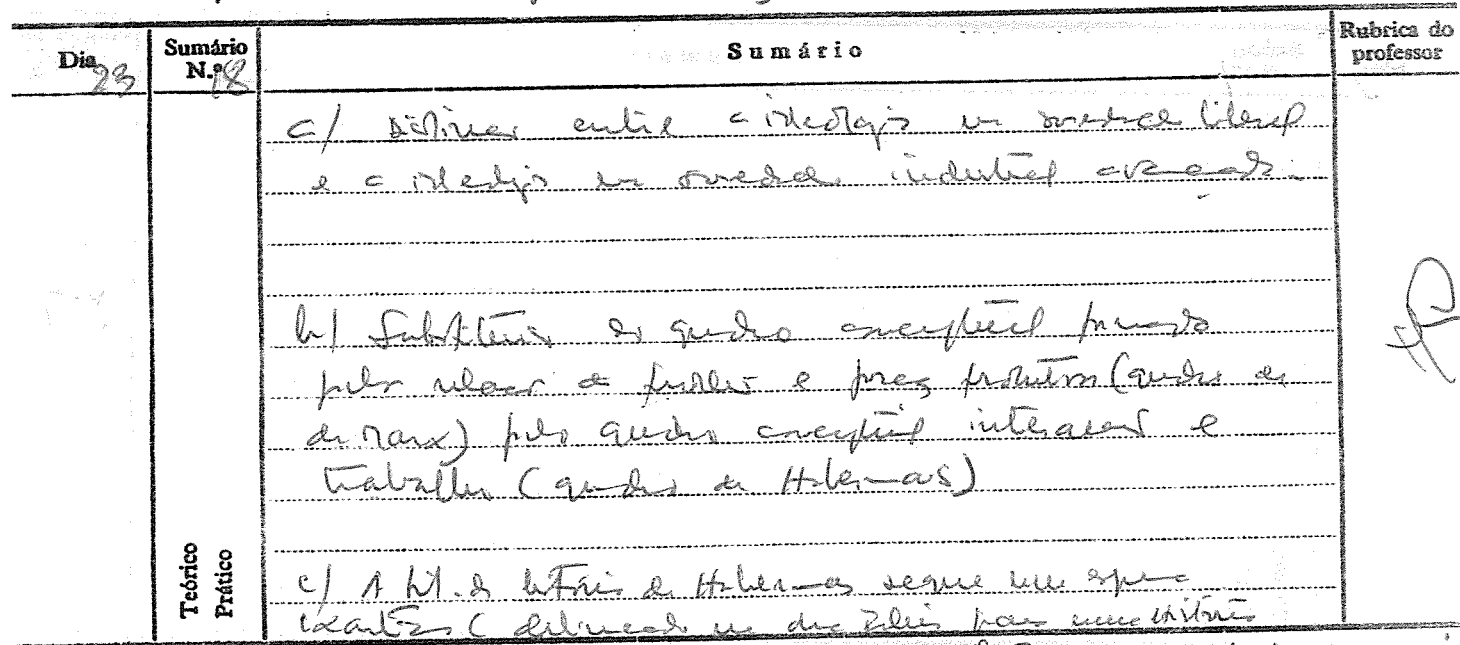 Dia 23
Sumário N.º 18
Sumário
Rubrica do professor
a/ Distinguir entre a ideologia na sociedade liberal
e a ideologia na sociedade industrial avançada.
b/ Substituição do quadro conceptual formado
pela relações de produção e forças produtivas (quadro de
de Marx) pelo quadro conceptual interacção e
trabalho (quadro de Habermas)
c/ A fil. da história de Habermas segue um
kantiano ( delineado na para uma história
Teórico
Prático